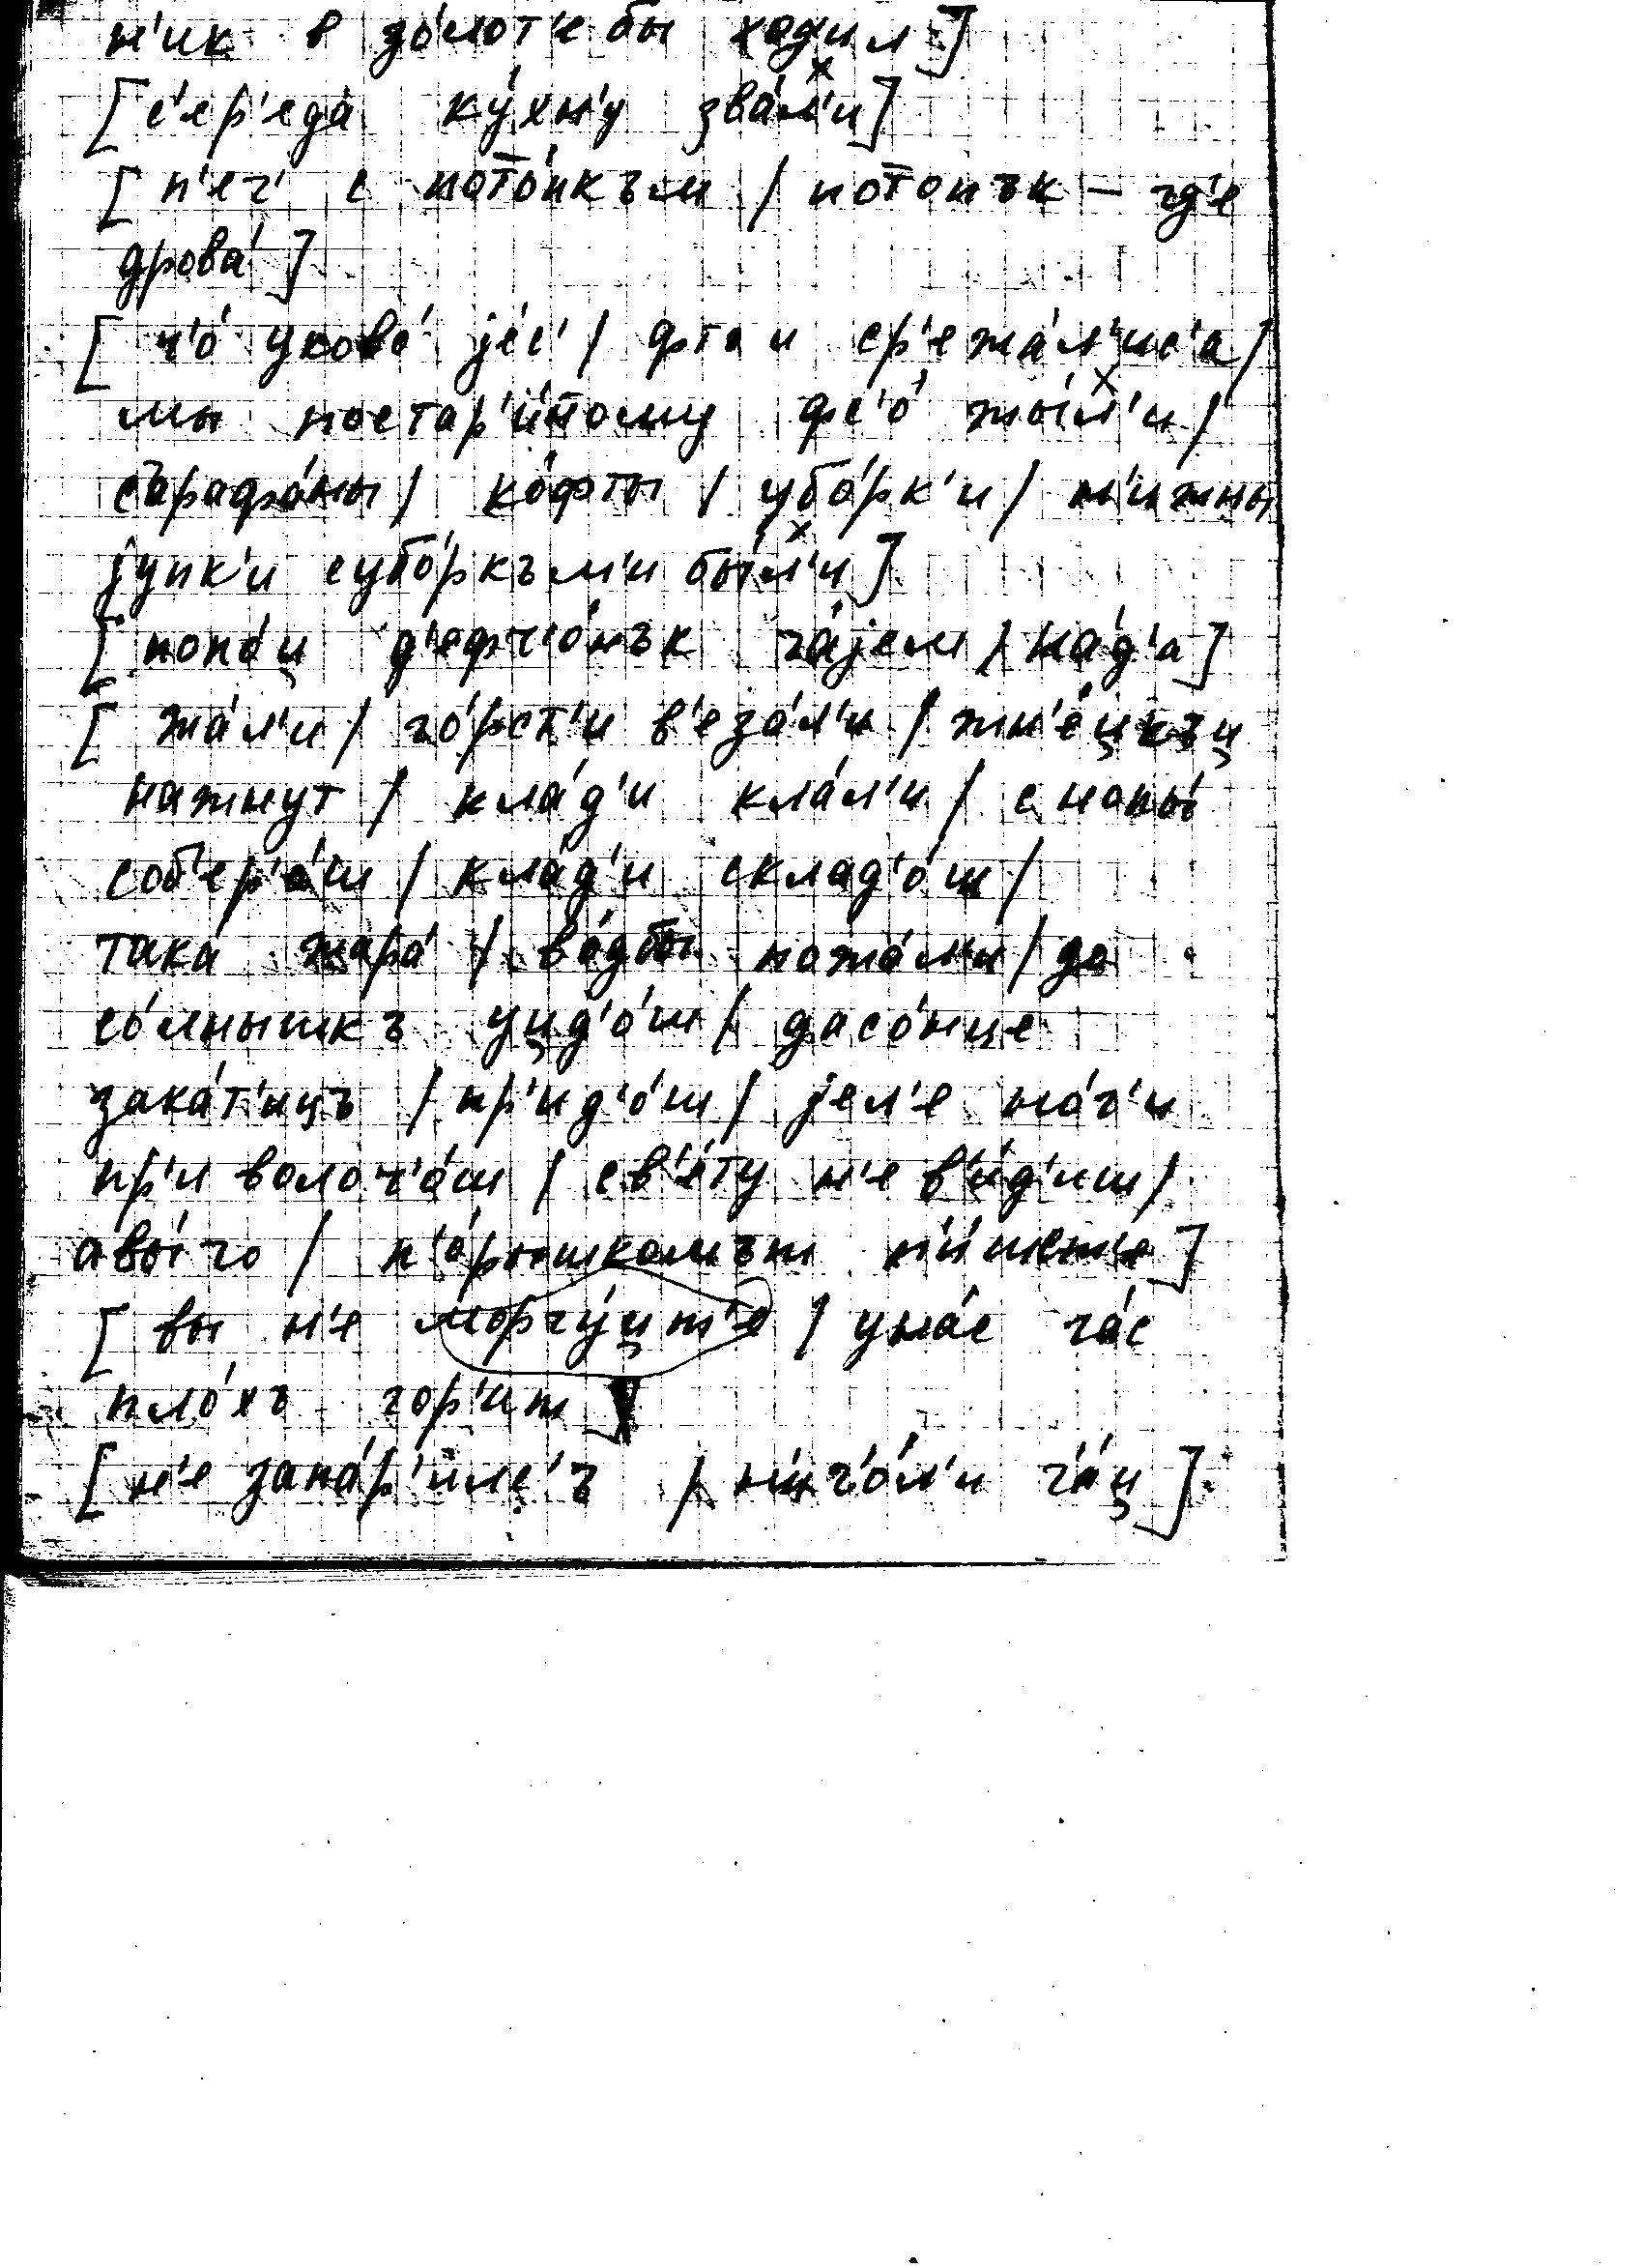 н'ик в зо́лот'е бы ходил]
[с'ер'еда́ ку́хн'у зва́л'и]
[п'еч' с пото́пкъм / потопък – гд'е
дрова́]
[ч'о́ уково́ jе́с' / фто и ср'ежа́л'ис'а /
мы постар'и́нному фс'о́ жы́л'и /
съраφа́ны / ко́фты / убо́рк'и / н'ижны
jупк'и субо́ркъм'и бы́л'и]
[попо́ц д'ефч'о́нък ча́jем / на́д'а]
[жа́л'и / го́рст'и в'еза́л'и / жн'е́цкъц
нажнут / кла́д'и кла́л'и / снопы́
соб'ер'о́ш / кла́д'и склад'о́ш /
така́ жара́ / во́дбы нажа́ли / до
со́лнышкъ уцд'о́ш / дасо́нце
зака́т'ицъ / пр'ид'о́ш / jел'е но́г'и
пр'и волоч'о́ш / св'е́ту н'е в'и́д'иш /
авы́ го / п'о́рышкомът]
[вы н'е моргу́цт'е / уна́с га́с
пло́хъ гор'ит]
[н'е запа́р'илс'ъ / н'ич'о́л'и ч'а́ц]